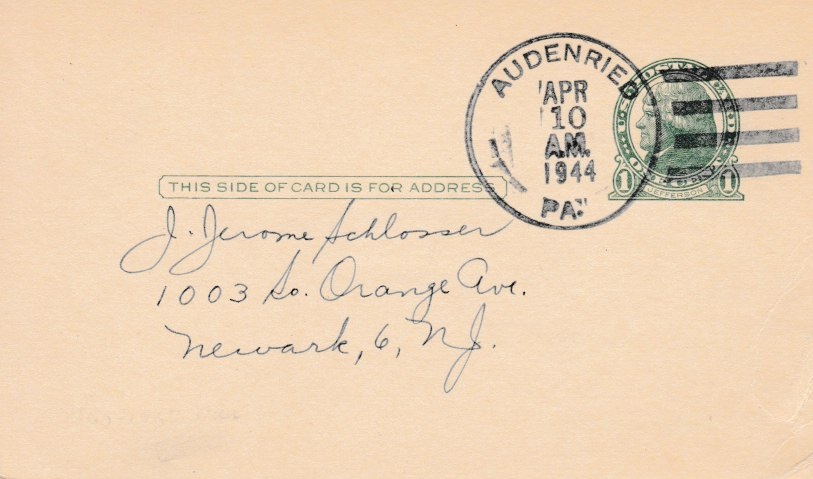 AUDENRIED
APR
10
A.M.
1944
PA.
U·S·POSTAL CARD
1 JEFFERSON 1
THIS SIDE OF CARD IS FOR ADDRESS
J. Jerome Schlosser
1003 So. Orange Ave.
Newark, 6, N.J.